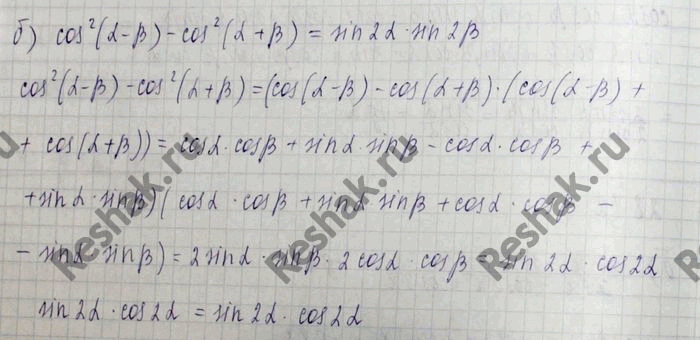 б) cos²(α-β) - cos²(α+β) = sin2α·sin2β
cos²(α-β) - cos²(α+β) = (cos(α-β) - cos(α+β)·(cos(α-β) +
+ cos(α+β)) = cosα·cosβ + sinα·sinβ - cosα·cosβ +
+ sinα·sinβ)(cosα·cosβ + sinα·sinβ + cosα·cosβ -
- sinα·sinβ) = 2sinα·sinβ·2cosα·cosβ = sin2α·cos2α
sin2α·cos2α = sin2α·cos2α
Reshak.ru
Reshak.ru
Reshak.ru